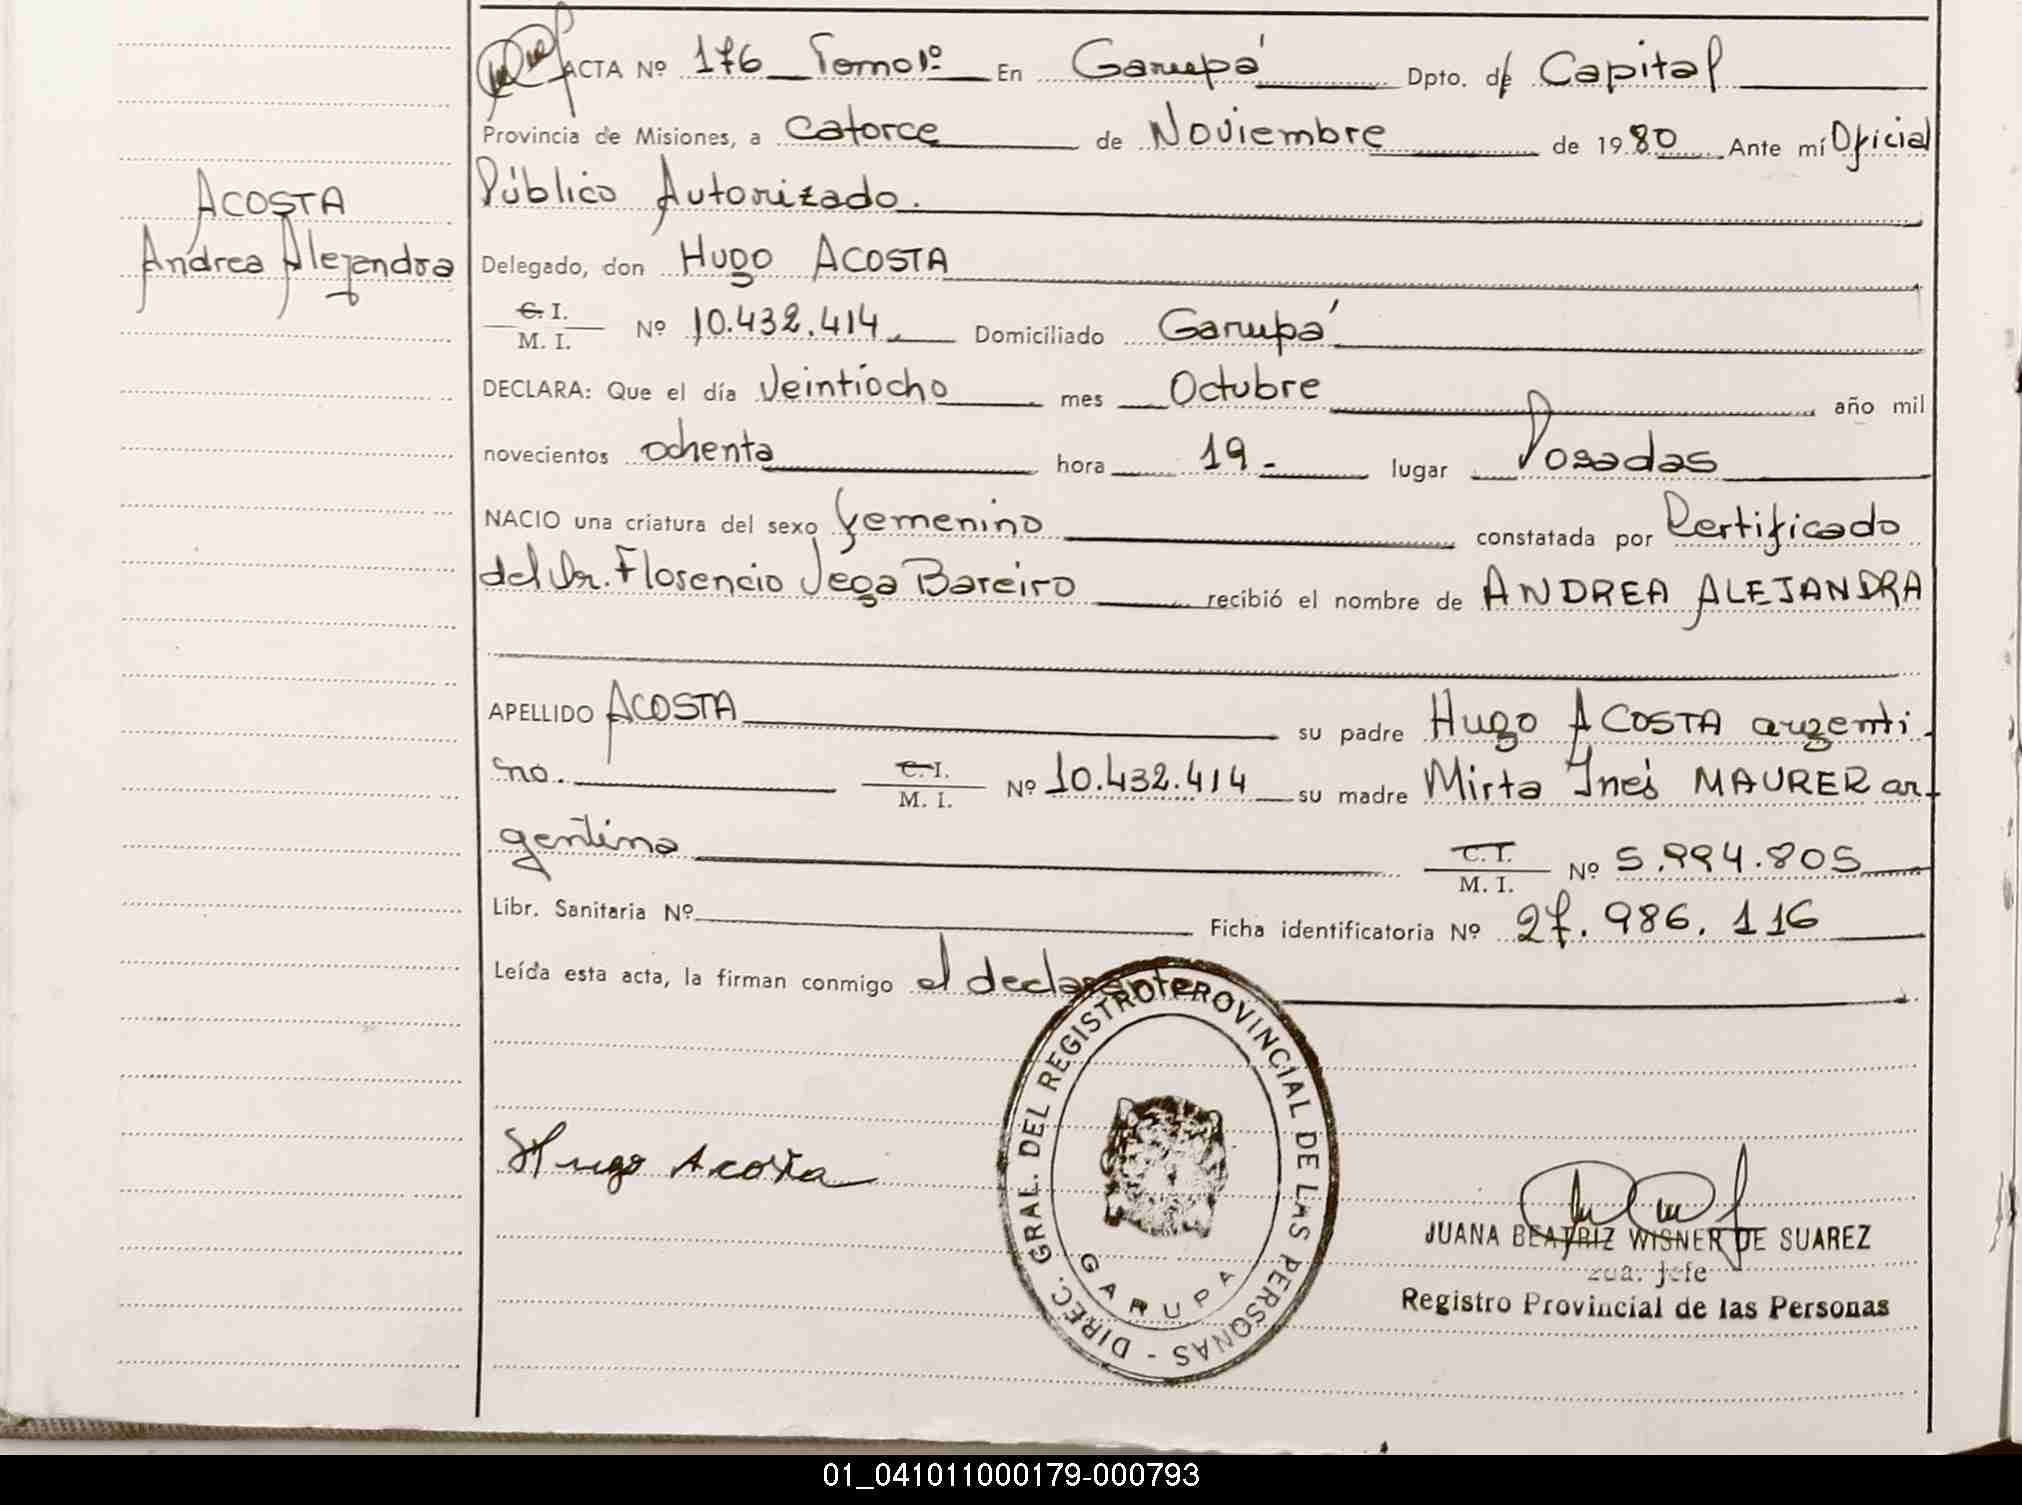 ACTA Nº 176 Tomo 1º En Garupá Dpto. de Capital
Provincia de Misiones, a Catorce de Noviembre de 1980 Ante mí Oficial
Público Autorizado.
ACOSTA
Andrea Alejandra
Delegado, don Hugo ACOSTA
C. I.
M. I. Nº 10.432.414 Domiciliado Garupá
DECLARA: Que el día Veintiocho mes Octubre año mil
novecientos ochenta hora 19 - lugar Posadas
NACIO una criatura del sexo femenino constatada por Certificado
del Dr. Florencio Vega Bareiro recibió el nombre de ANDREA ALEJANDRA
APELLIDO ACOSTA su padre Hugo ACOSTA argenti-
no. C. I.
M. I. Nº 10.432.414 su madre Mirta Inés MAURER ar-
gentina C. I.
M. I. Nº 5.994.805
Libr. Sanitaria Nº Ficha identificatoria Nº 27.986.116
Leída esta acta, la firman conmigo el declarante
DIREC. GRAL. DEL REGISTRO PROVINCIAL DE LAS PERSONAS -
GARUPA
Hugo Acosta
JUANA BEATRIZ WISNER DE SUAREZ
2da. Jefe
Registro Provincial de las Personas
01_041011000179-000793